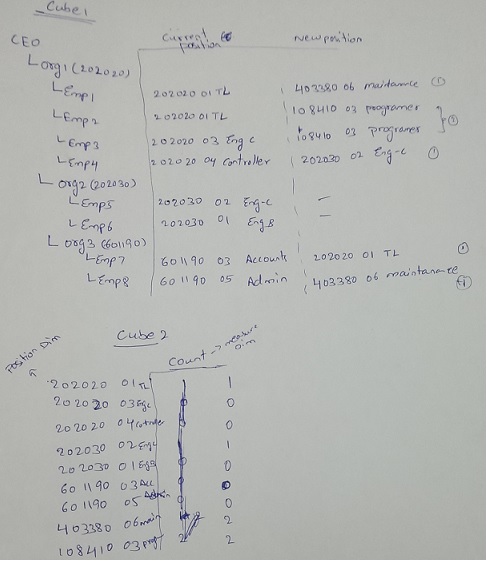 Cube1
CEO
Current position
New position
org1 (202020)
Emp1 202020 01 TL 403380 06 maitamce 1
Emp2 202020 01 TL 108410 03 programer
Emp3 202020 03 Eng c 108410 03 programer
Emp4 202020 04 Controller 202030 02 Eng-C 1
org2 (202030)
Emp5 202030 02 Eng-C -
Emp6 202030 01 Eng B -
org3 (601190)
Emp7 601190 03 Accounts 202020 01 TL
Emp8 601190 05 Admin 403380 06 maintanance
Cube 2
Position Dim
Count -> measure Dim
202020 01 TL 1
202020 03 Eng C 0
202020 04 0
202030 02 Eng 1
202030 01 Eng B 0
601190 03 Acc 0
601190 05 Admin 0
403380 06 main 2
108410 03 prog 2